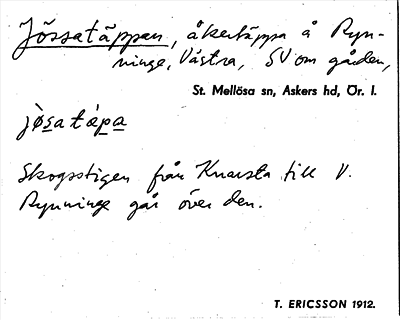 Jössatäppan, åkertäppa å Ryn-
ninge, Västra, SV om gården,
St. Mellösa sn, Askers hd, Ör. l.
jø̀s̲a tápa̲
Skogsstigen från Knarsta till V.
Rynninge går över den.
T. ERICSSON 1912.